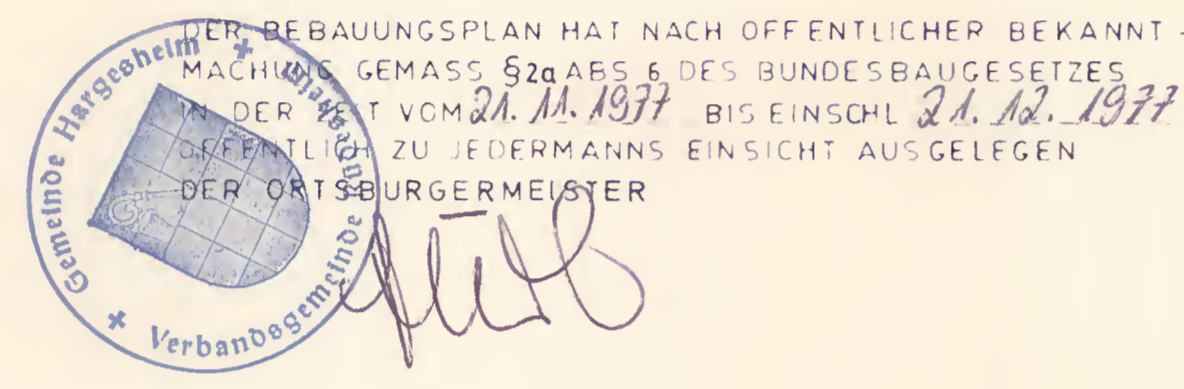 DER BEBAUUNGSPLAN HAT NACH OFFENTLICHER BEKANNT-
MACHUNG GEMASS §2a ABS 6 DES BUNDESBAUGESETZES
IN DER ZEIT VOM 21. 11. 1977 BIS EINSCHL 21. 12. 1977
OFFENTLICH ZU JEDERMANNS EINSICHT AUSGELEGEN
DER ORTSBURGERMEISTER
Gemeinde Hargesheim
Verbandsgemeinde Rüdesheim